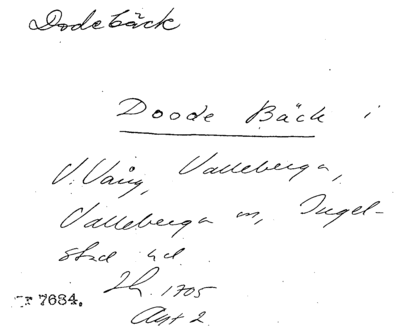 Dodebäck
Doode Bäck i
V. Vång, Valleberga,
Valleberga sn, Ingel-
stad hd.
1705
Akt 2
7684.